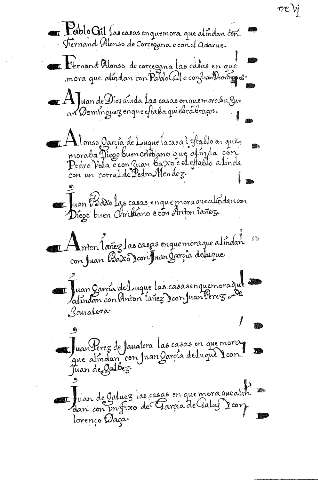 Pablo Gil las casas en que mora que alindan con
Fernand Alonso de con el
Fernand Alonso de las casas en que
mora que alindan con Pablo Gil e con Juan
A Juan de las casas en que mora
en que
Alonso Garcia de Luque la casa y establo en que
moraba Diego buen cristiano que alinda con
Pedro Vela e con Juan Pardo e el establo alinda
con un corral de Pedro Mendez
Juan Pardo las casas en que mora que alindan con
Diego buen Christiano e con Anton Iañez
Anton Iañez las casas en que mora que alindan
con Juan Pardo y con Juan Garcia de luque
Juan Garcia de Luque las casas en que mora que
alindan con Anton Iañez y con Juan Perez de
Juan Perez de las casas en que mora
que alindan con Juan Garcia de luque y con
Juan de Galbez
Juan de Galuez las casas en que mora que alin
dan con un fixo de Garcia de y con
lorenço